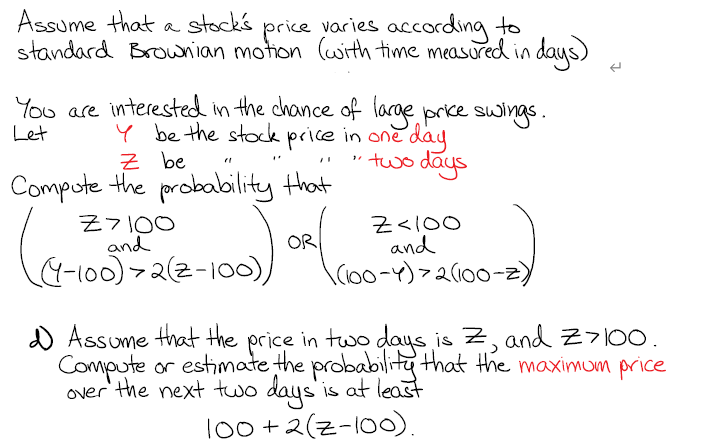 Assume that a stock's price varies according to
standard Brownian motion (with time measured in days)
You are interested in the chance of large price swings.
Let Y be the stock price in one day
Z be " " " " two days
Compute the probability that
(Z>100 and (Y-100)>2(Z-100)) OR (Z<100 and (100-Y)>2(100-Z))
d) Assume that the price in two days is Z, and Z>100.
Compute or estimate the probability that the maximum price
over the next two days is at least
100+2(Z-100).